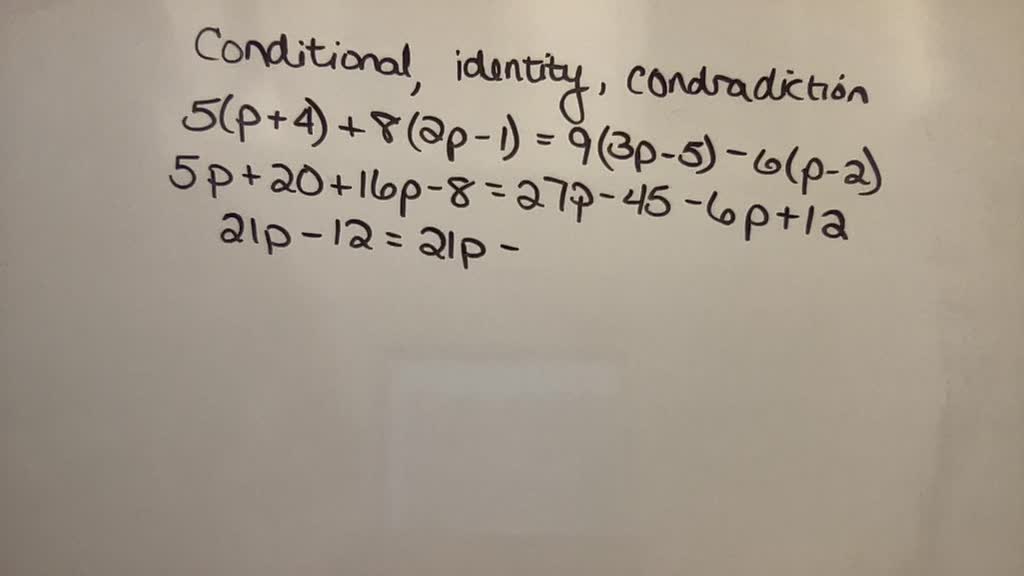 Conditional, identity, condradiction
5(p+4)+8(2p-1)=9(3p-5)-6(p-2)
5p+20+16p-8=27p-45-6p+12
21p-12=21p-